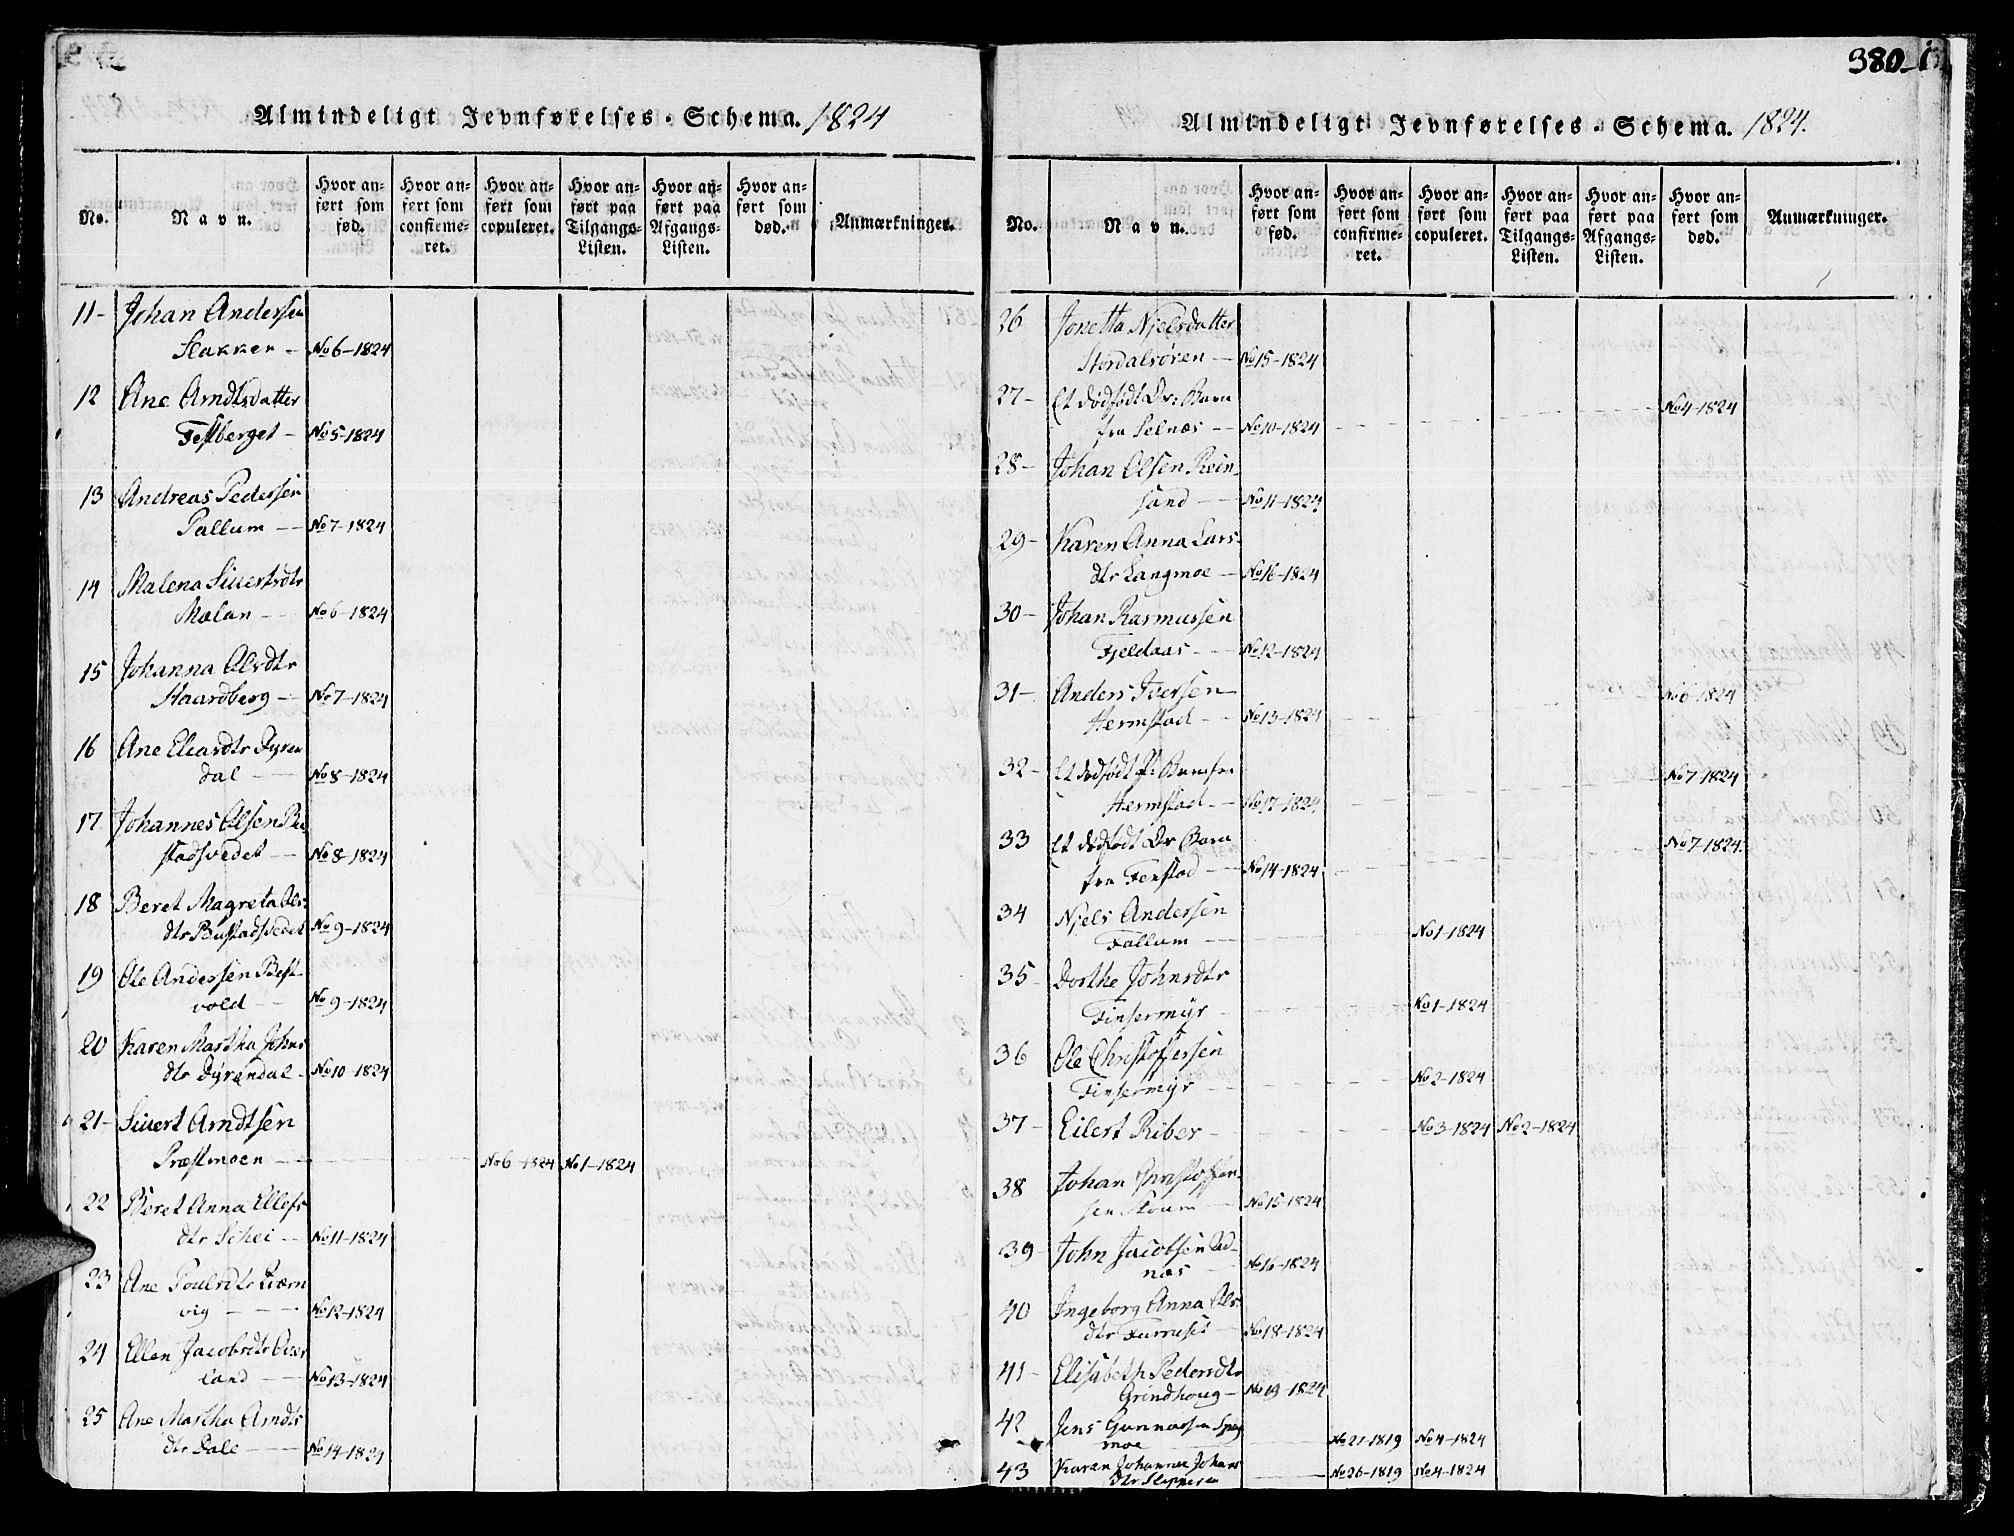 Almindeligt Jevnførelses-Schema. 1824
No. Navn. Hvor anført som fød. Hvor anført som confirmeret. Hvor anført som copuleret. Hvor anført paa Tilgangs-Listen. Hvor anført paa Afgangs-Listen. Hvor anført som død. Anmærkninger.
11- Johan Andersen
Slakken - No 6-1824
12 Ane Arndtsdatter
Festberget - No 5-1824
13 Andreas Pedersen
Pallum - No 7-1824
14 Malena Siuertsdtr
Mælan - No 6-1824
15 Johanna Olsdtr
Haardberg - No 7-1824
16 Ane Eleardtr Dyren
dal - No 8-1824
17 Johannes Olsen Bu
stadsvedet - No 8-1824
18 Beret Magreta Ols-
dtr Bustadsvedet No 9-1824
19 Ole Andersen Best-
vold - No 9-1824
20 Karen Martha Johns
dtr Dyrendal - No 10-1824
21- Siuert Arndtsen
Præstmoen - No 6-1824 No 1-1824
22 Beret Anna Ellefs
dtr Schei - No 11-1824
23 Ane Poulsdtr Qværn
vig - No 12-1824
24 Ellen Jacobsdtr Over
land - No 13-1824
25 Ane Martha Arndts
dtr Dale - No 14-1824
380
Almindeligt Jevnførelses-Schema. 1824.
No. Navn. Hvor anført som fød. Hvor anført som confirmeret. Hvor anført som copuleret. Hvor anført paa Tilgangs-Listen. Hvor anført paa Afgangs-Listen. Hvor anført som død. Anmærkninger.
26 Jonetta Njelsdatter
Stordalsören - No 15-1824
27- Et dödfödt Dr: Barn No 4-1824
fra Selnæs - No 10-1824
28- Johan Olsen Rein-
sand - No 11-1824
29- Karen Anna Lars-
dtr Langmoe - No 16-1824
30- Johan Rasmussen
Fjeldaas - No 12-1824
31- Anders Iversen - No 6-1824
Hermstad - No 13-1824
32- Et dödfödt P: Barn fra No 7-1824
Hermstad - No 17-1824
33 Et dödfödt Dr Barn No 7-1824.
fra Fenstad - No 14-1824
34 Njels Andersen
Fallum - No 1-1824
35 Dorthe Johnsdtr
Finsermyr - No 1-1824
36 Ole Christoffersen
Finsermyr - No 2-1824
37- Eilert Riber - No 3-1824 No 2-1824
38 Johan Christoffer-
sen Stöum - No 15-1824
39 John Jacobsen Ud-
næs No 16-1824
40 Ingeborg Anna Ols
dtr Furneset - No 18-1824
41- Elisabeth Pedersdtr
Grindhoug - No 19-1824
42 Jens Gunnarsen
moe No 21-1819 No 4-1824
43 Karen Johanna Johans
dtr Slipperen No 26-1819 No 4-1824